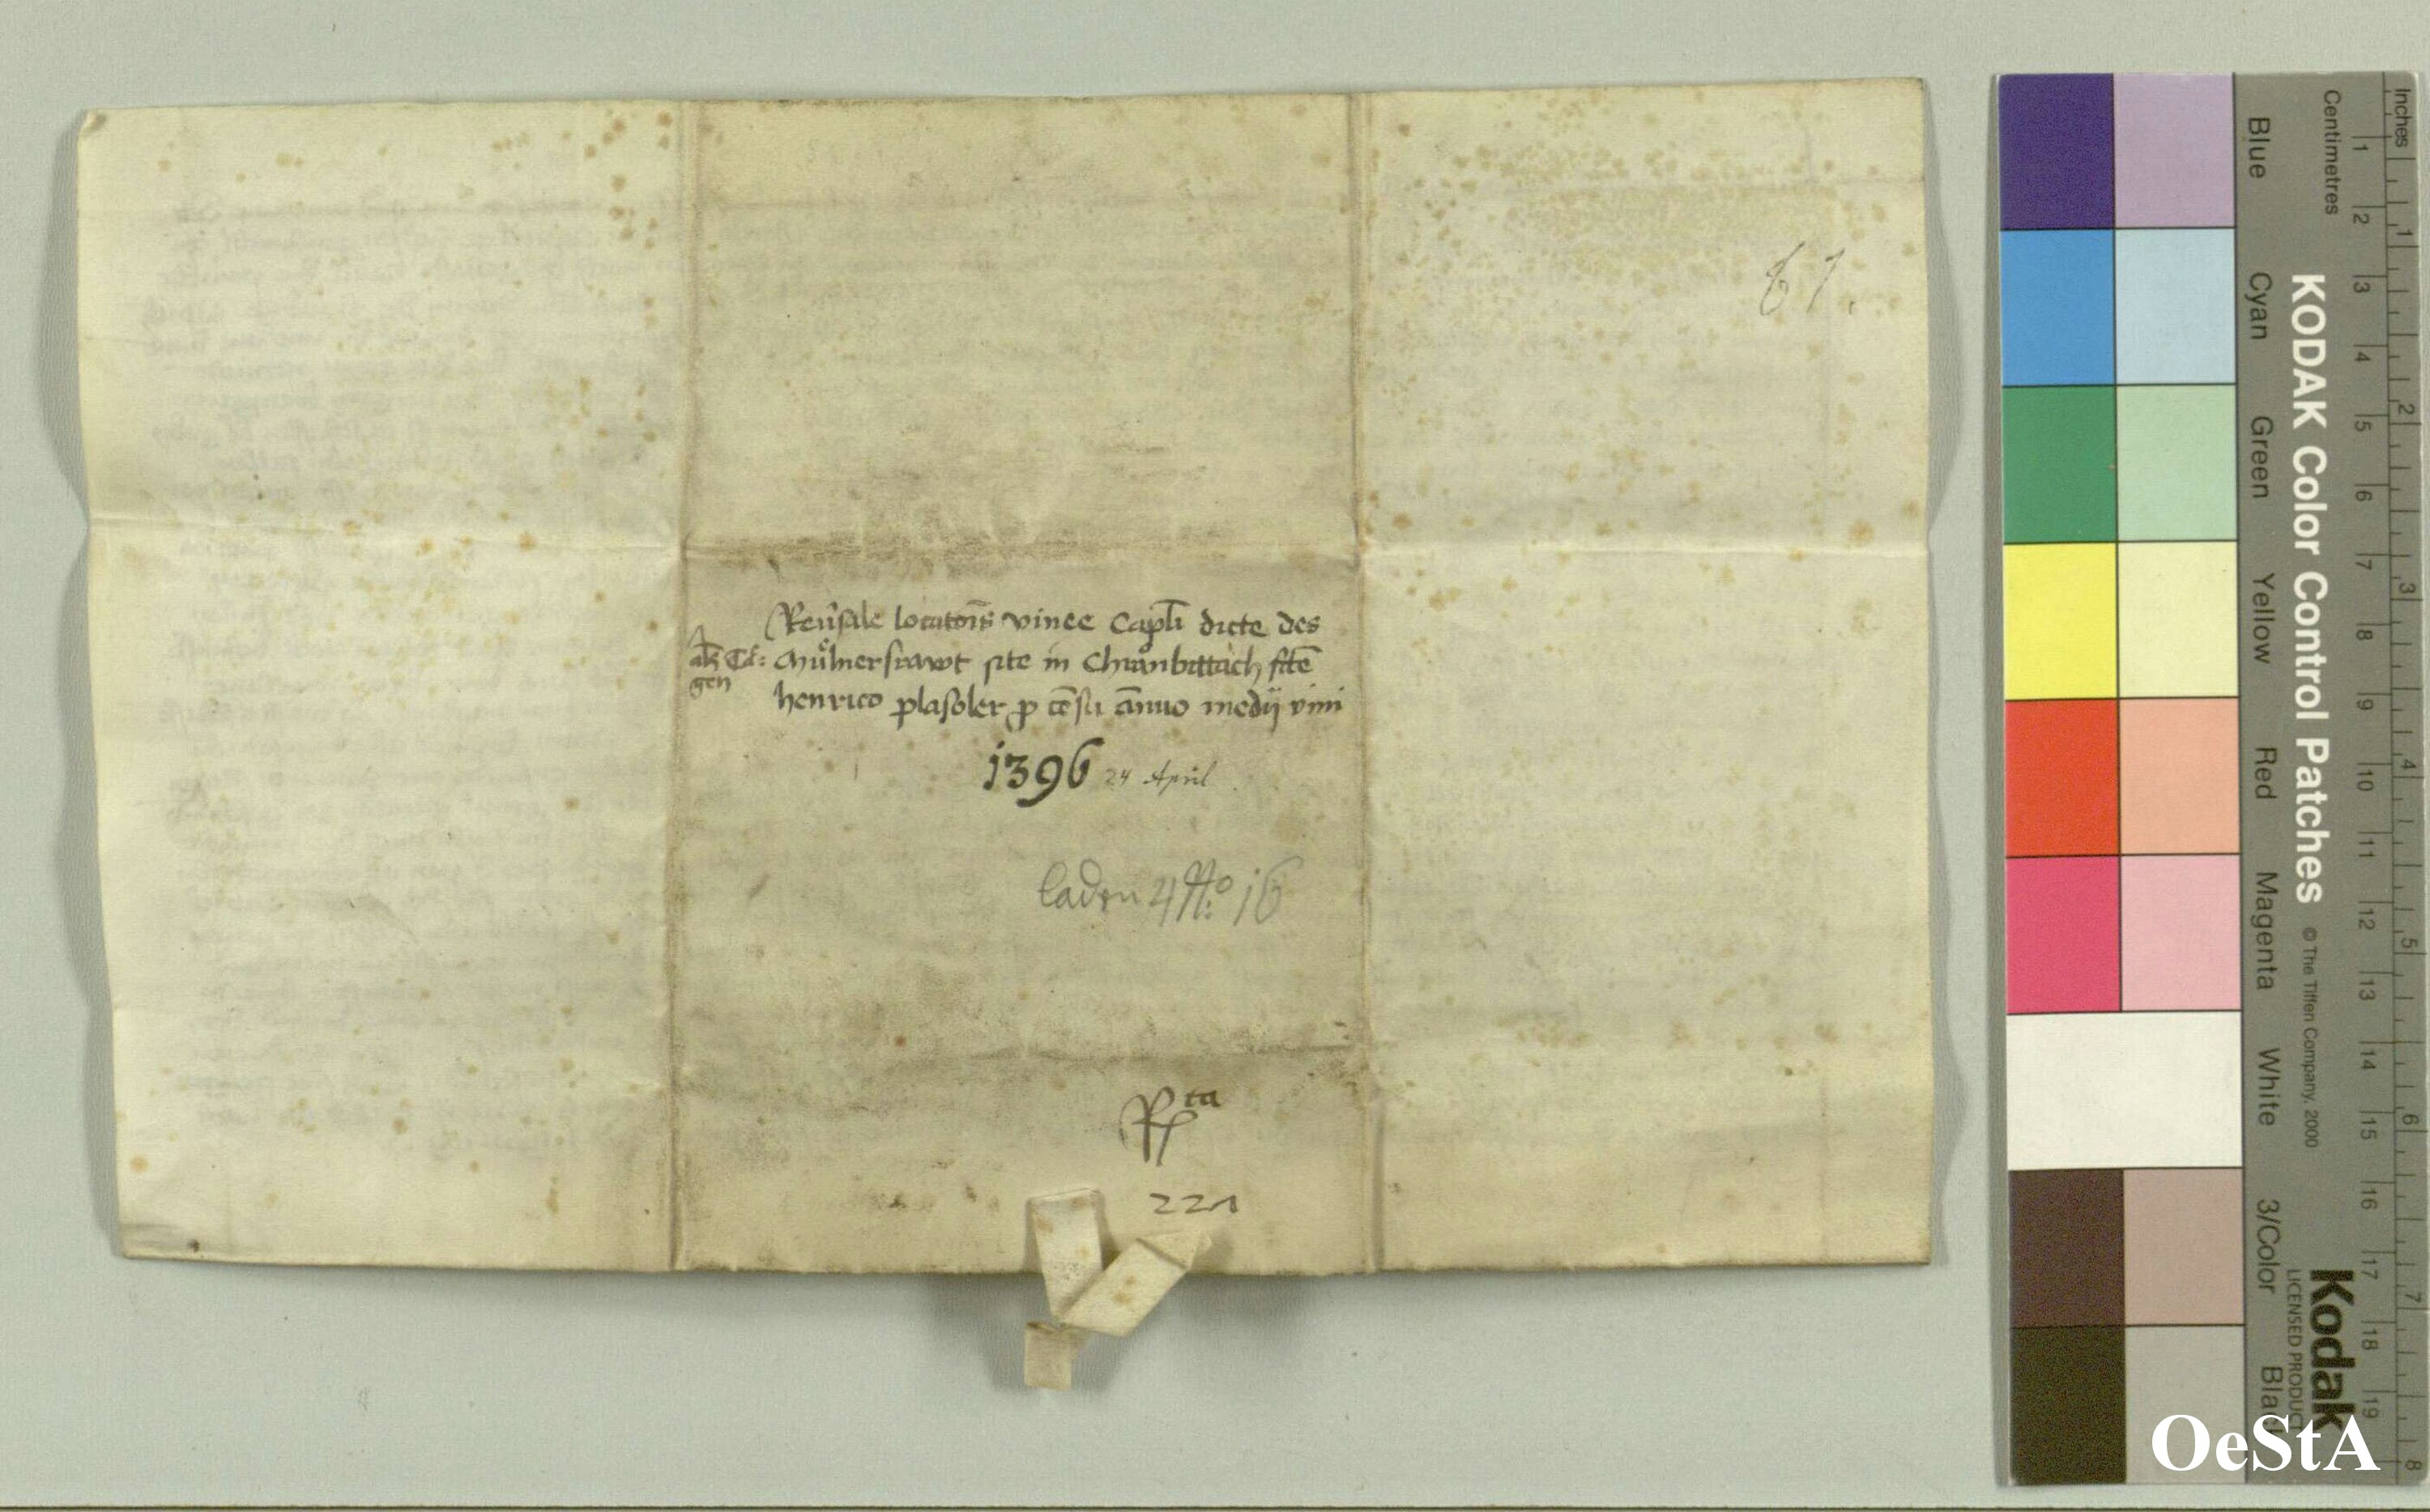 61.
Reu̅sale locato̅is vinee Capl̅i dicte des
Mu̇lnersrawt site in Chranbittach fc̅te
henrico plasoler p ce̅su a̅nuo medij vini
gen
1396 24 April
laden 4 No: 16
Rta
221
Inches
Centimetres
KODAK Color Control Patches © The Tiffen Company, 2000
Kodak
LICENSED PRODUCT
Blue
Cyan
Green
Yellow
Red
Magenta
White
3/Color
Black
1 2 3 4 5 6 7 8 9 10 11 12 13 14 15 16 17 18 19
1 2 3 4 5 6 7 8
OeStA